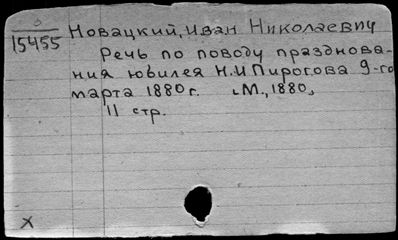 15455
Новацкий, Иван Николаевич
Речь по поводу празднова-
ния юбилея Н.И Пирогова 9-го
марта 1880 г. [М., 1880]
11 стр.
X